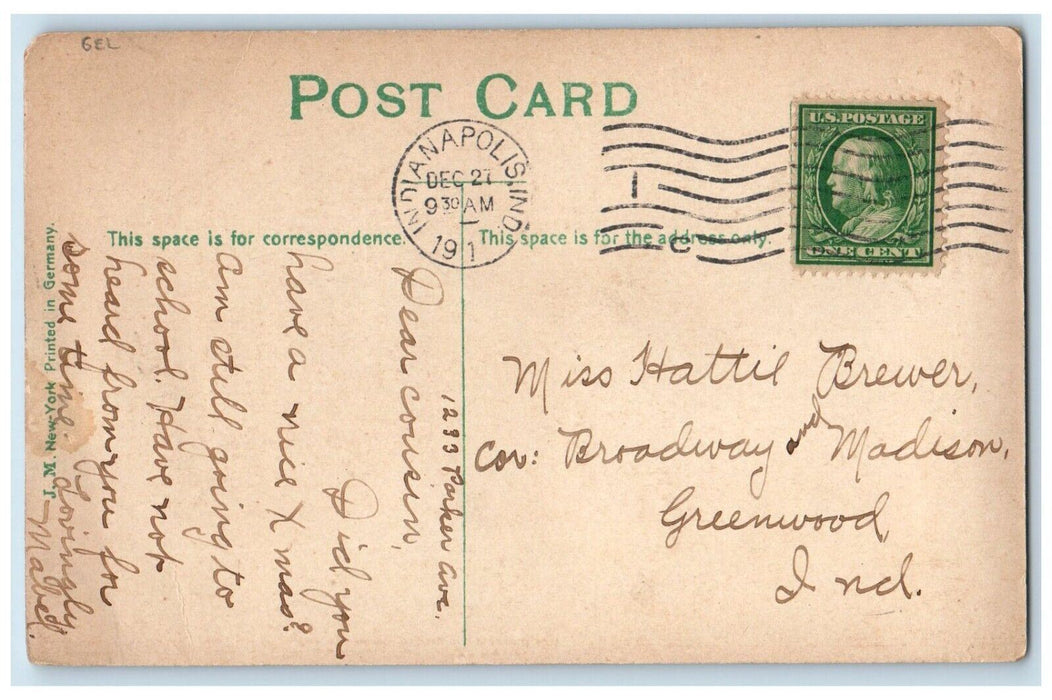 GEL
POST CARD
INDIANAPOLIS, IND.
DEC 27
9 30 AM
191
1
C
U.S. POSTAGE
ONE CENT
This space is for correspondence.
This space is for the address only.
J. M. New-York Printed in Germany.
1233 Parker ave.
Dear cousin,
Did you
have a nice X mas?
am still going to
school. Have not
heard from you for
some time. Lovingly
Mabel.
Miss Hattie Brewer,
Cor: Broadway and Madison,
Greenwood,
Ind.